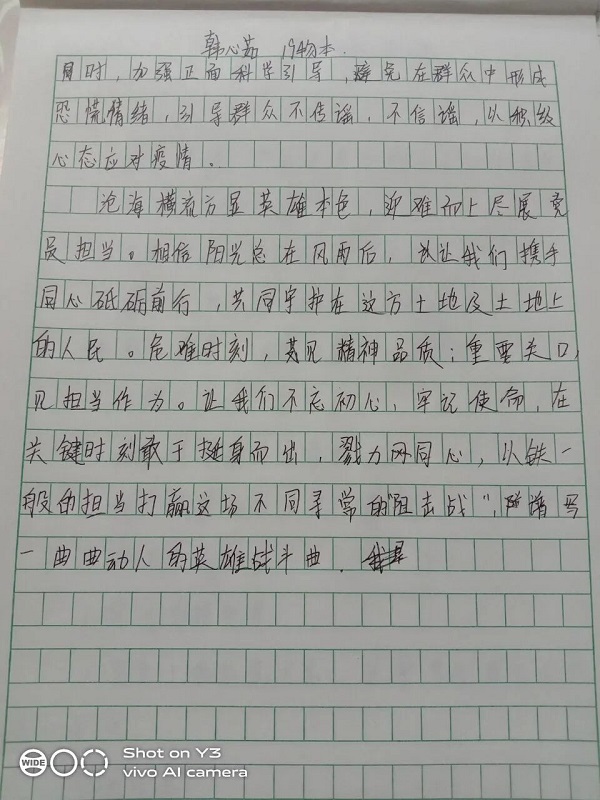 韩心茹 19物本.
同时，加强正面科学引导，避免在群众中形成
恐慌情绪，引导群众不传谣，不信谣，以积级
心态应对疫情。
沧海横流方显英雄本色，迎难而上尽展党
员担当。相信阳光总在风雨后，让我们携手
同心砥砺前行，共同守护在这方土地及土地上
的人民。危难时刻，其见精神品质；重要关口，
见担当作为。让我们不忘初心、牢记使命，在
关键时刻敢于挺身而出，戮力同心，以铁一
般的担当打赢这场不同寻常的"阻击战"，谱写
一曲曲动人的英雄战斗曲.
WIDE
Shot on Y3
vivo AI camera